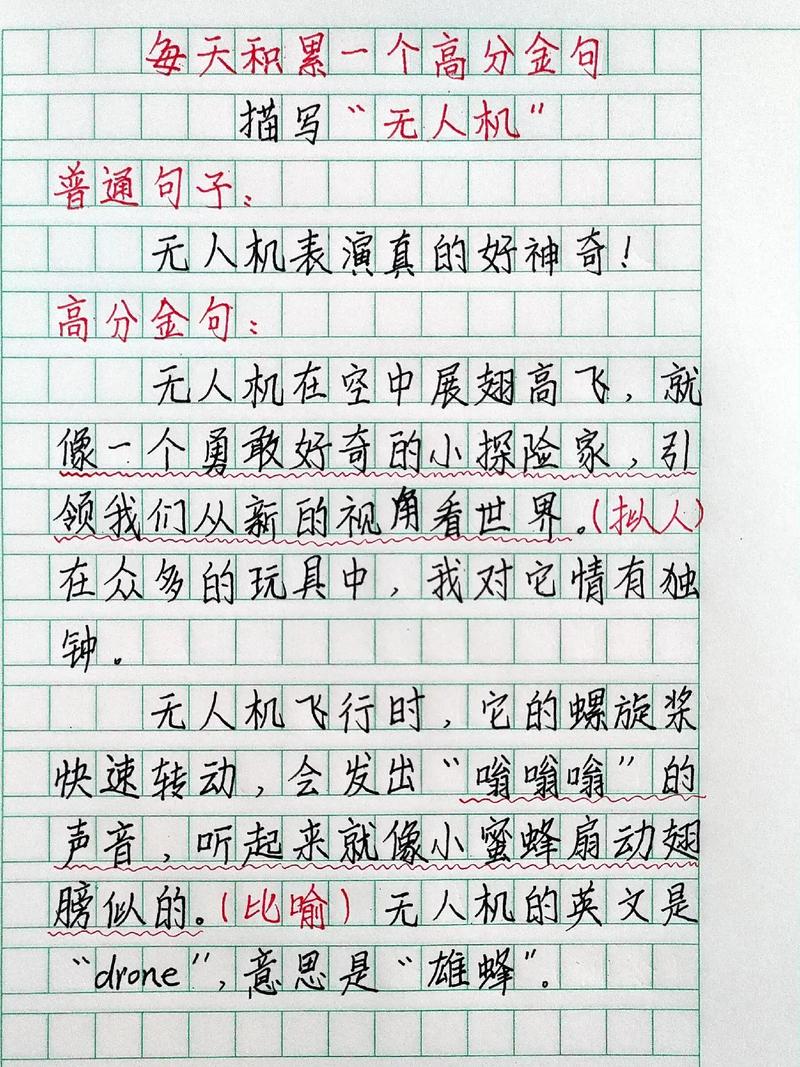 每天积累一个高分金句
描写“无人机”
普通句子：
无人机表演真的好神奇！
高分金句：
无人机在空中展翅高飞，就
像一个勇敢好奇的小探险家，引
领我们从新的视角看世界。（拟人）
在众多的玩具中，我对它情有独
钟。
无人机飞行时，它的螺旋桨
快速转动，会发出“嗡嗡嗡”的
声音，听起来就像小蜜蜂扇动翅
膀似的。（比喻）无人机的英文是
“drone”，意思是“雄蜂”。